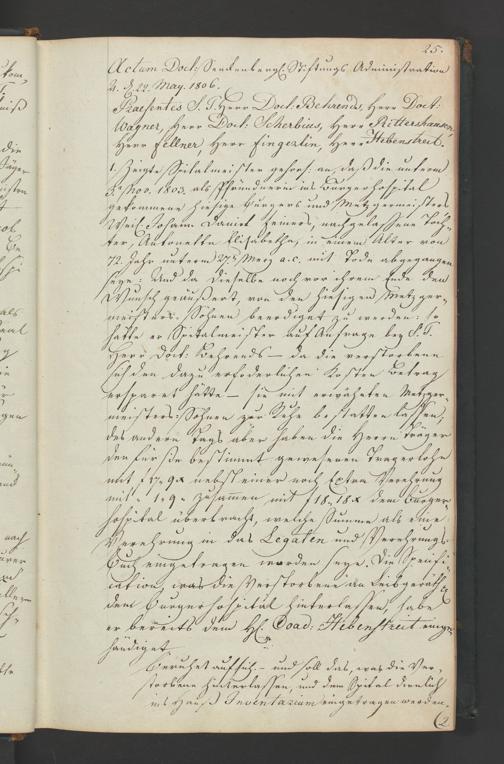 25.
Actum Doct: Senckenbergl: Stiftungs Administration
d. 22. May. 1806.
Praesentis S. T. Herr Doct: Behrends, Herr Doct:
Wagner, Herr Doct: Scherbius, Herr Röttershausen,
Herr Fellner, Herr Fingerlin, Herr Hebenstreit.
1. Zeigte Spitalmeister gehors: an, daß die unterm
Nov. 1803. als Pfründnerin ins Bürgerhospital
gekommene hiesige Burgers und Metzgermeisters
Weil: Johann Daniel Heiners, nachgelassene Toch-
ter, Antonetta Elisabetha, in einem Alter von
72. Jahr unterm 27. Merz a. c. mit Tode abgegangen
seye: Und da dieselbe noch vor ihrem Ende den
Wunsch geäußert, von den hiesigen Metzger-
meisters-Söhnen beerdiget zu werden: so
hätte er Spitalmeister auf Anfrage bey S. T.
Herr Doct: Behrends — da die verstorbene
sich den dazu erforderlichen Kosten Betrag
ersparet hätte — sie mit erwähnten Metzger-
meisters-Söhnen zur Ruhe bestatten lassen,
des andern Tags aber haben die Herrn Träger
den für Sie bestimmt gewesenen Tragerlohn
mit nebst einer noch Extra Verehrung
mit zusammen mit f 18.18x dem Burger-
hospital überbracht, welche Summe als eine
Verehrung in das Legaten und Verehrungs-
Buch eingetragen worden seye. Die Specifi-
cation, was die Verstorbene an Leibgeräth
dem Burgerhospital hinterlassen, habe
er bereits dem Coad: Hebenstreit einge-
händiget
Beruhet auf sich — und soll das, was die Ver-
storbene hinterlassen, und dem Spital dienlich
ins Hauß Inventarium eingetragen werden.
(2